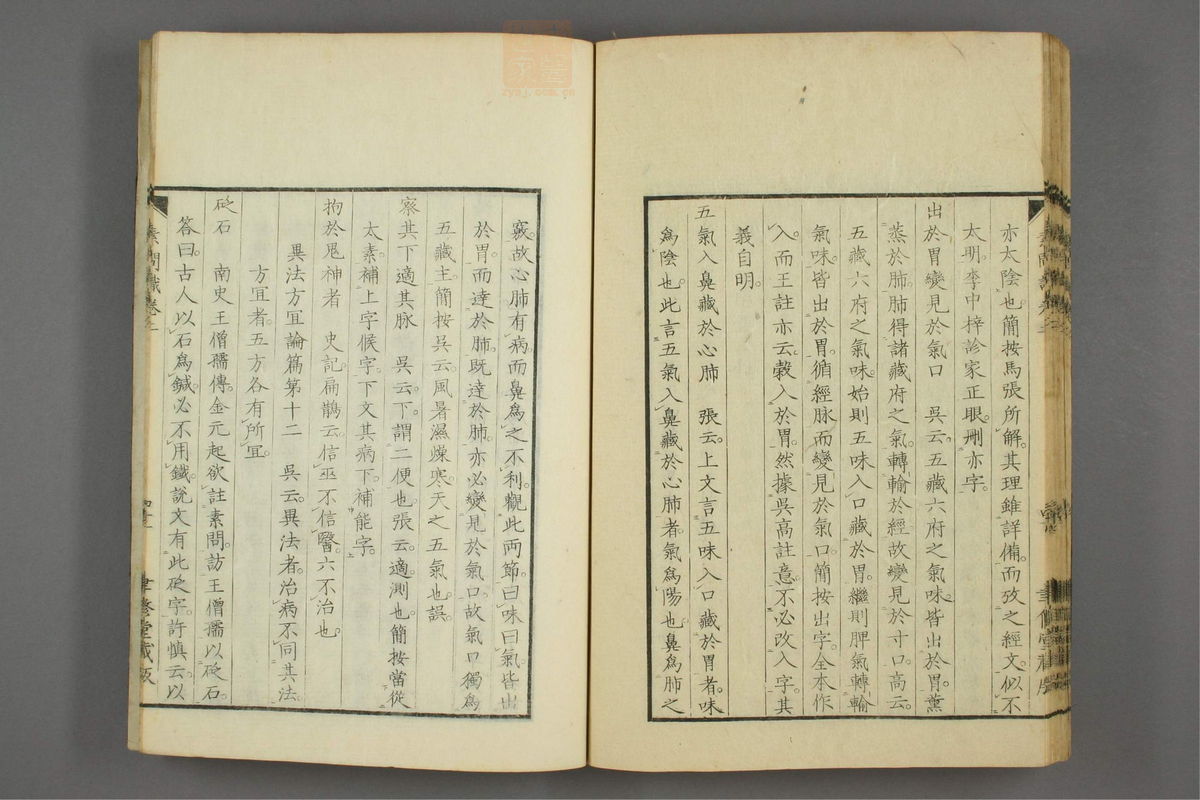 亦太陰也簡按馬張所解其理雖詳備而攷之經文似不
太明李中梓診家正眼刪亦字
出於胃變見於氣口　吳云五藏六府之氣味皆出於胃薰
蒸於肺肺得諸藏府之氣轉輸於經故變見於寸口高云
五藏六府之氣味始則五味入口藏於胃繼則脾氣轉輸
氣味皆出於胃循經脉而變見於氣口簡按出字全本作
入而王註亦云穀入於胃然據吳高註意不必改入字其
義自明
五氣入鼻藏於心肺　張云上文言五味入口藏於胃者味
爲陰也此言五氣入鼻藏於心肺者氣爲陽也鼻爲肺之
竅故心肺有病而鼻爲之不利觀此两節曰味曰氣皆出
於胃而達於肺既達於肺亦必變見於氣口故氣口獨爲
五藏主簡按吳云風暑濕燥寒天之五氣也誤
察其下適其脉　吳云下謂二便也張云適測也簡按當從
太素補上字候字下文其病下補能字
拘於鬼神者　史記扁鵲云信巫不信醫六不治也
異法方宜論篇第十二　吳云異法者治病不同其法
方宜者五方各有所宜
砭石　南史王僧孺傳金元起欲註素問訪王僧孺以砭石
答曰古人以石爲鍼必不用鐵說文有此砭字許慎云以
素問識卷二
聿修堂藏版